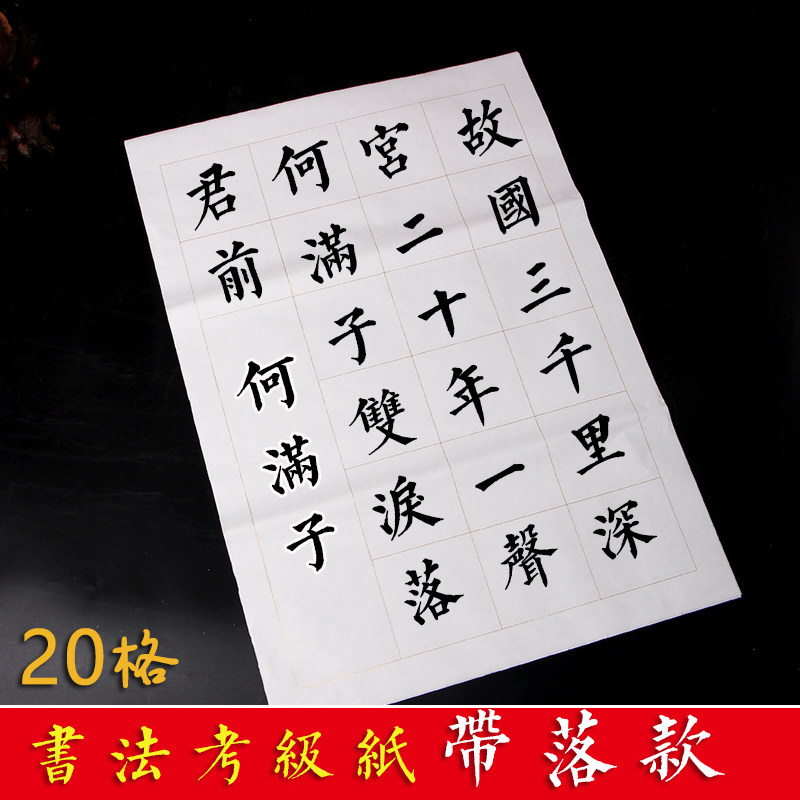 故國三千里深
宮二十年一聲
何滿子雙淚落
君前
何滿子
20格
書法考級紙帶落款